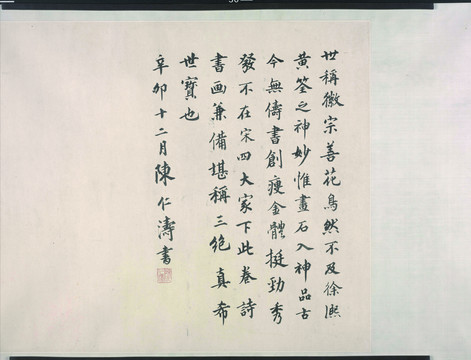 世稱徽宗善花鳥然不及徐熙
黃筌之神妙惟畫石入神品古
今無儔書創瘦金體挺勁秀
發不在宋四大家下此卷詩
書画兼備堪稱三絕真希
世寶也
辛卯十二月陳仁濤書